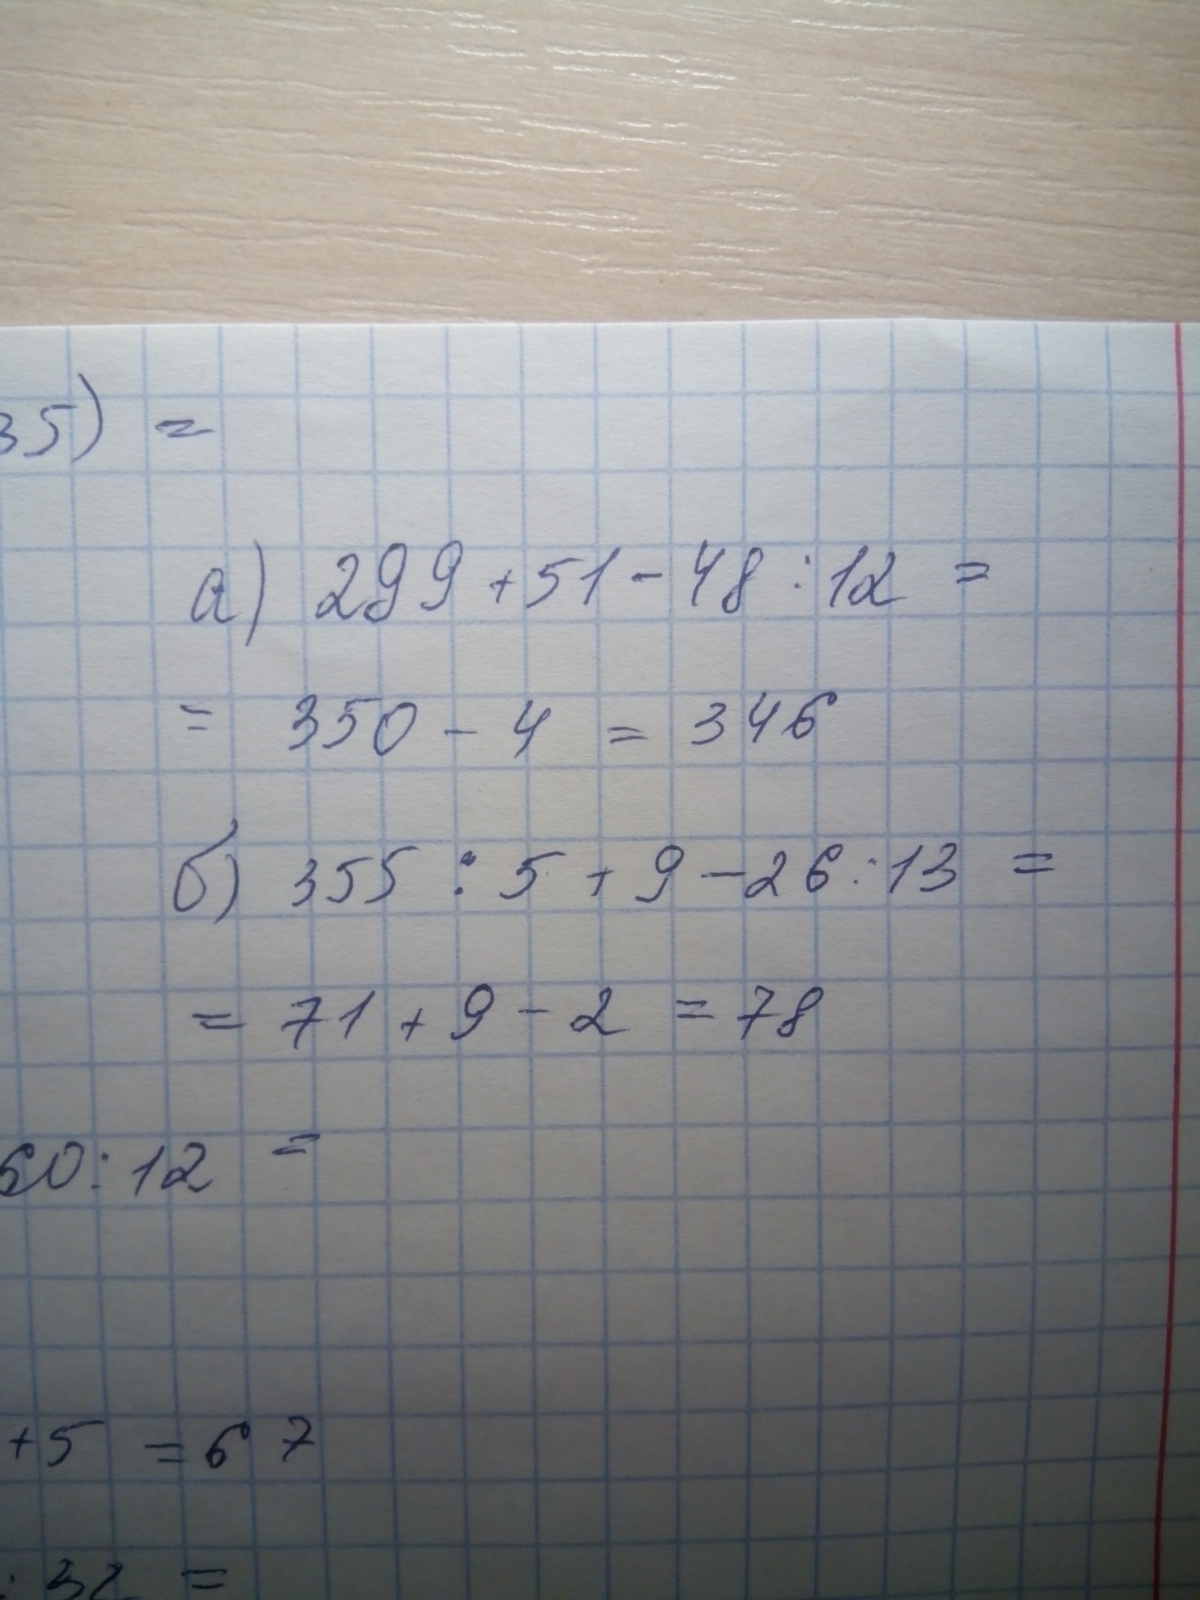 35) =
а) 299 + 51 - 48 : 12 =
= 350 - 4 = 346
б) 355 : 5 + 9 - 26 : 13 =
= 71 + 9 - 2 = 78
60 : 12 =
+ 5 = 67
: 32 =